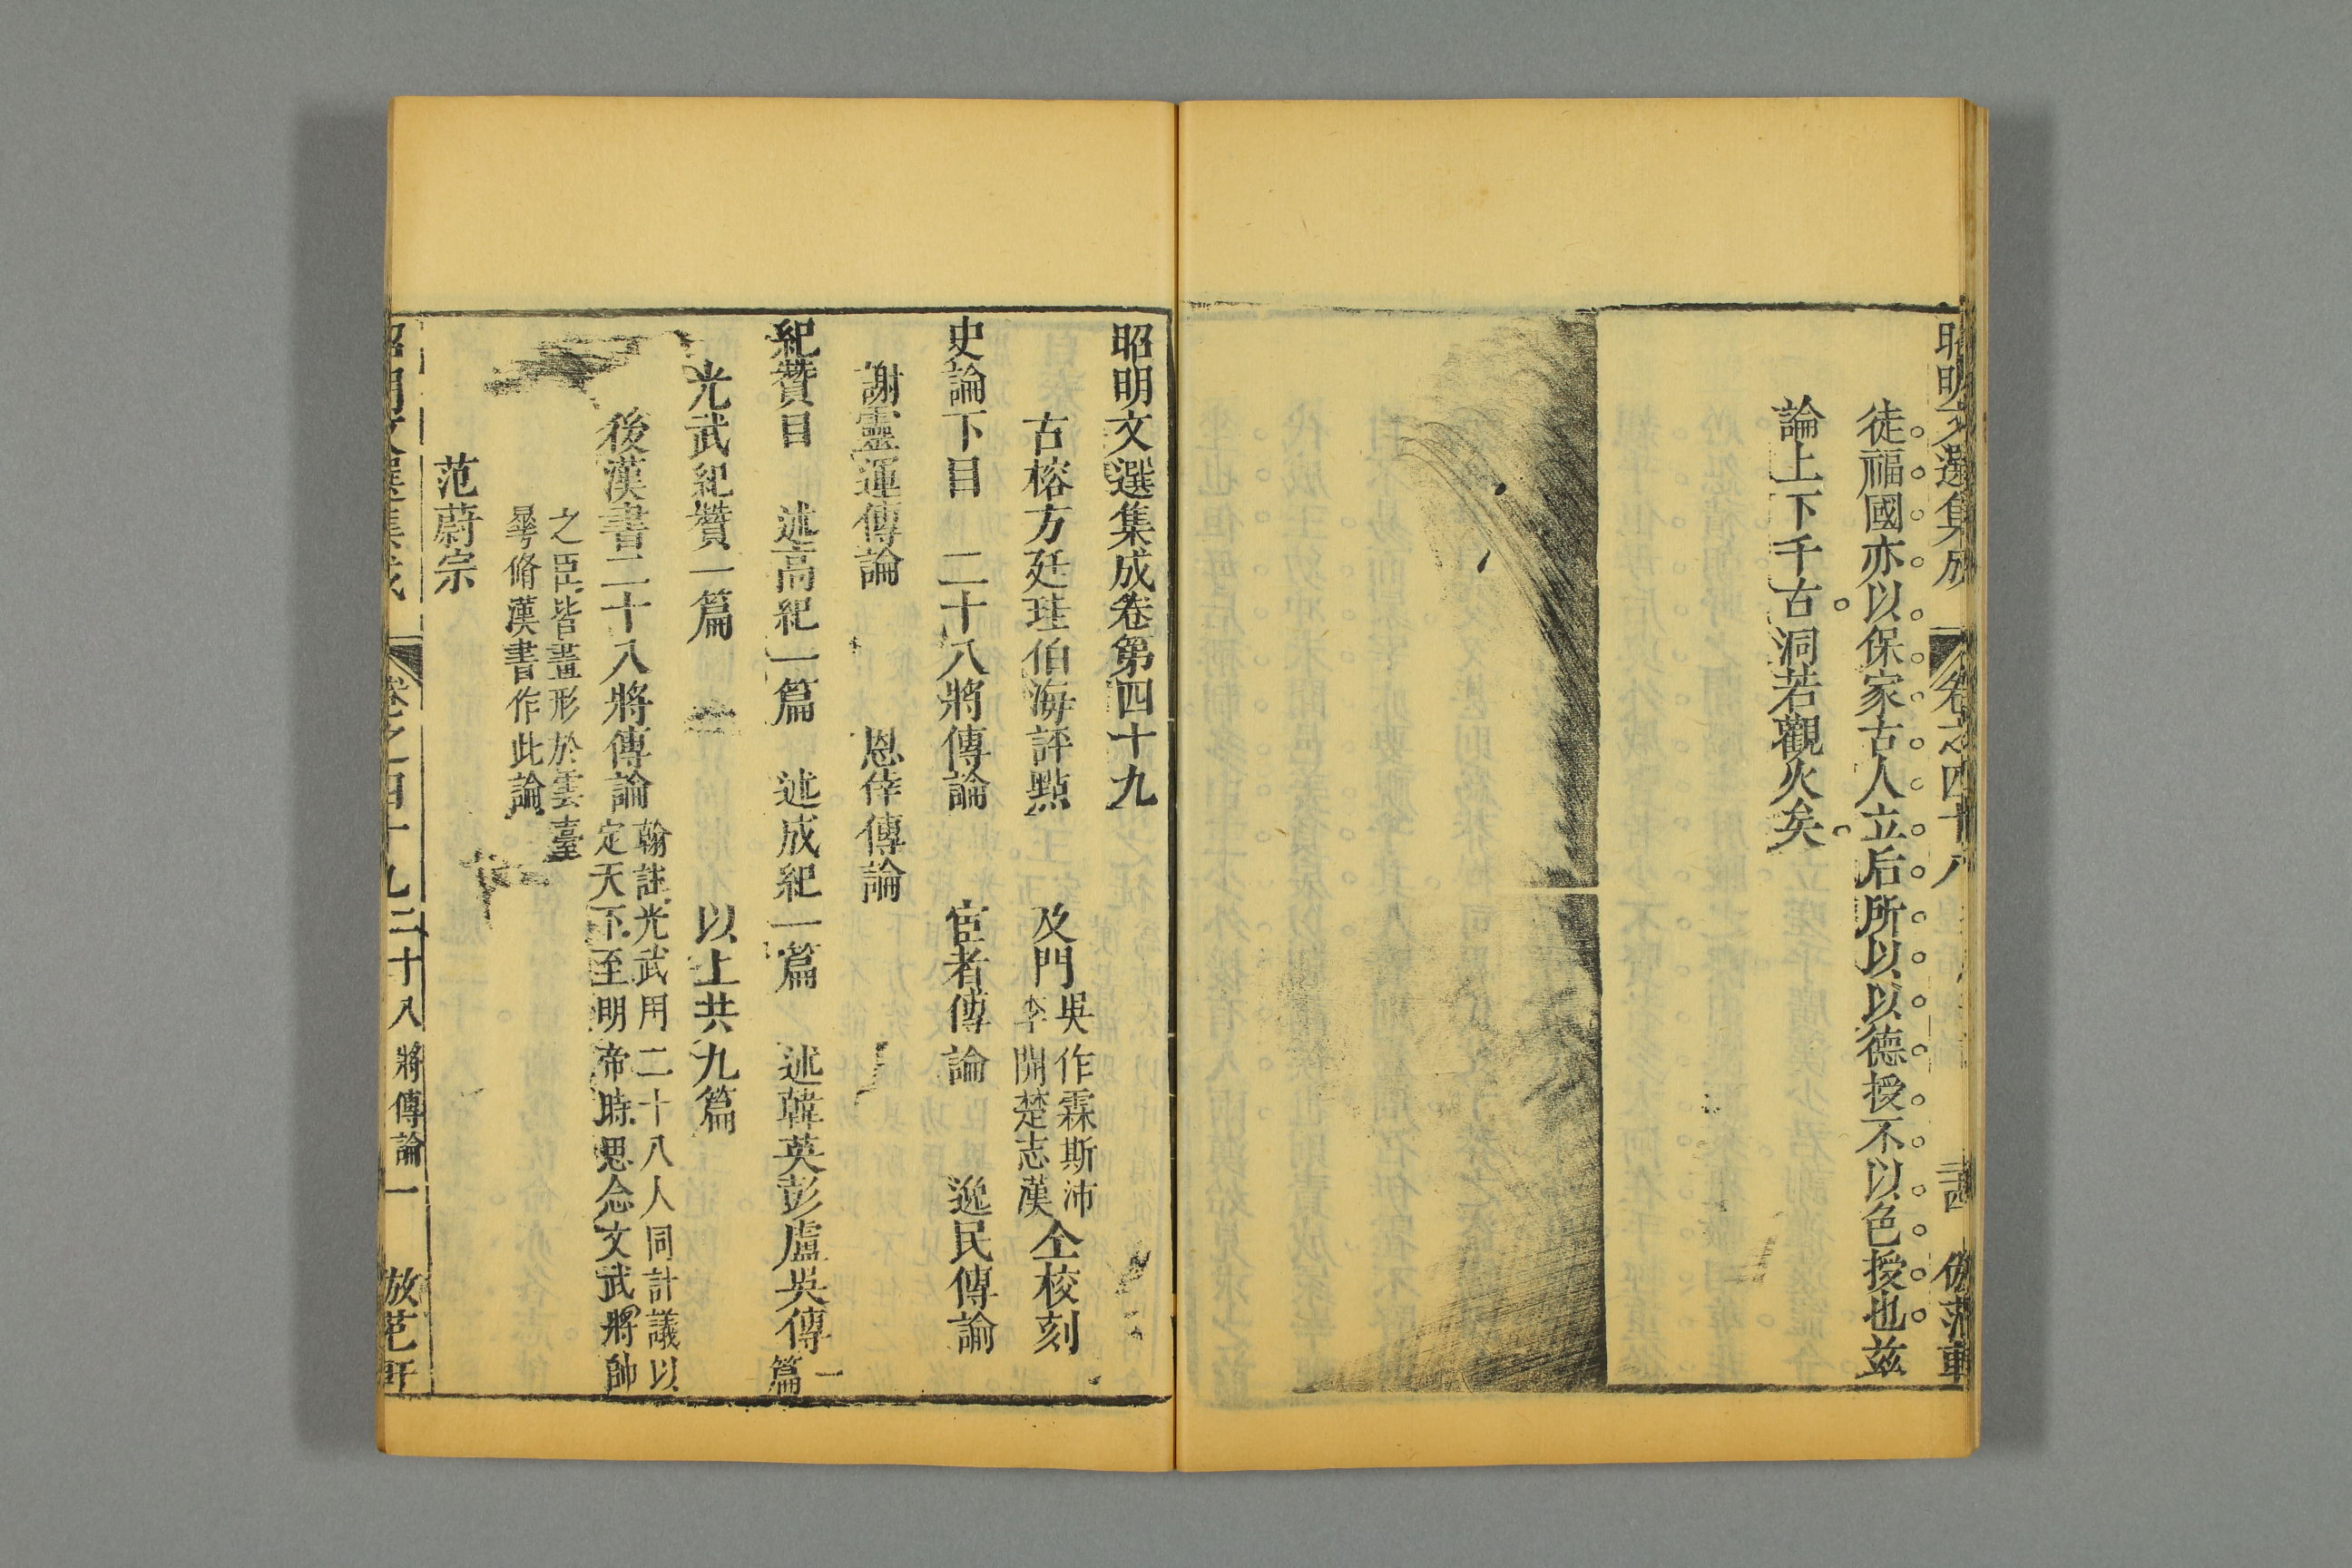 昭明文選集成
卷之四十八
徒福國亦以保家古人立后所以以德授不以色授也茲
論上下千古洞若觀火矣
昭明文選集成卷第四十九
古榕方廷珪伯海評點
及門
吳作霖斯沛
李開楚志漢
仝校刻
史論下目 二十八將傳論 宦者傳論 逸民傳論
謝靈運傳論 恩倖傳論
紀贊目 述高紀一篇 述成紀一篇 述韓英彭盧吳傳一篇
光武紀贊一篇 以上共九篇
後漢書二十八將傳論
翰註光武用二十八人同計議以
定天下至明帝時思念文武將帥
之臣皆畫形於雲臺
曅脩漢書作此論
范蔚宗
昭明文選集成
卷之四十九 二十八將傳論 一
倣范軒